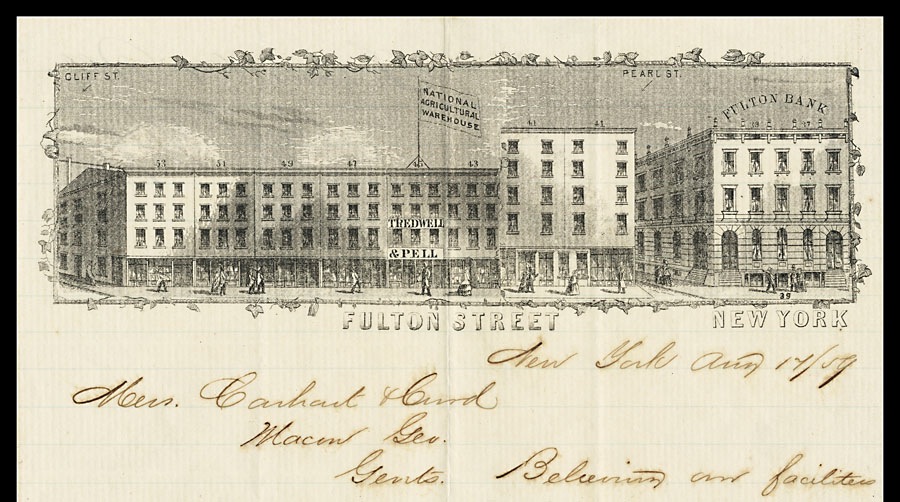 CLIFF ST.
PEARL ST.
NATIONAL
AGRICULTURAL
WAREHOUSE
FULTON BANK
41 41
37
53 51 49 47 45 43
TREDWELL
& PELL
39
FULTON STREET NEW YORK
New York Aug 17/59
Mess. Carhart & Curd
Macon Geo.
Gents. Believing our facilities